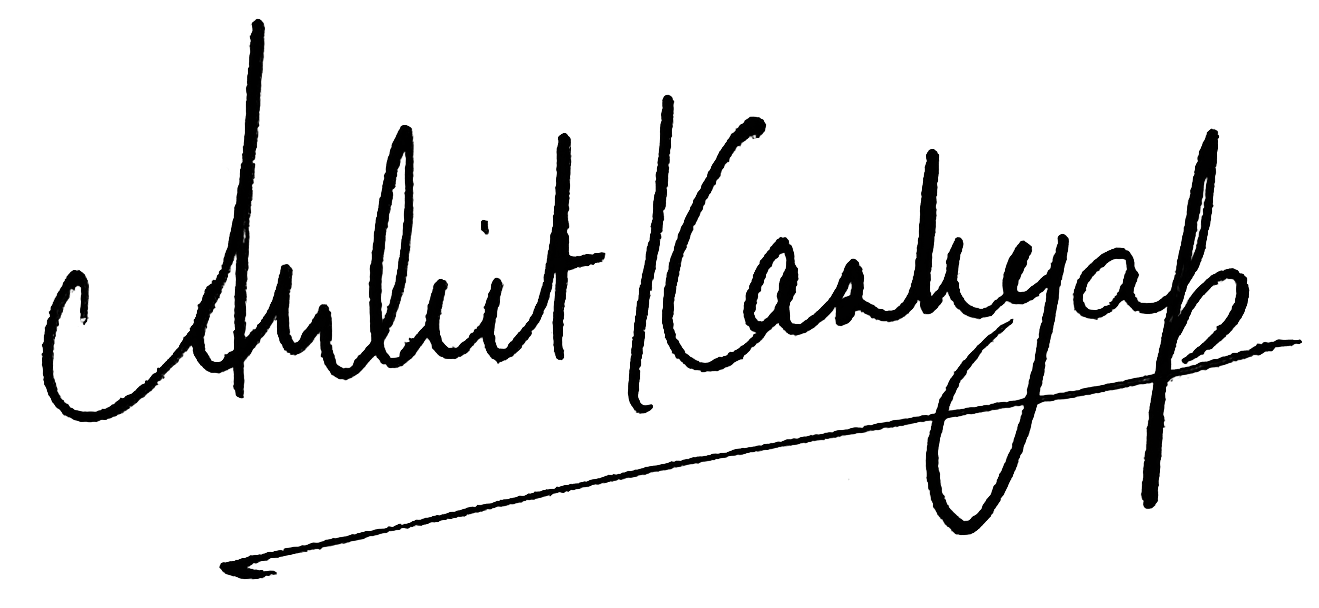 Ankit Kashyap